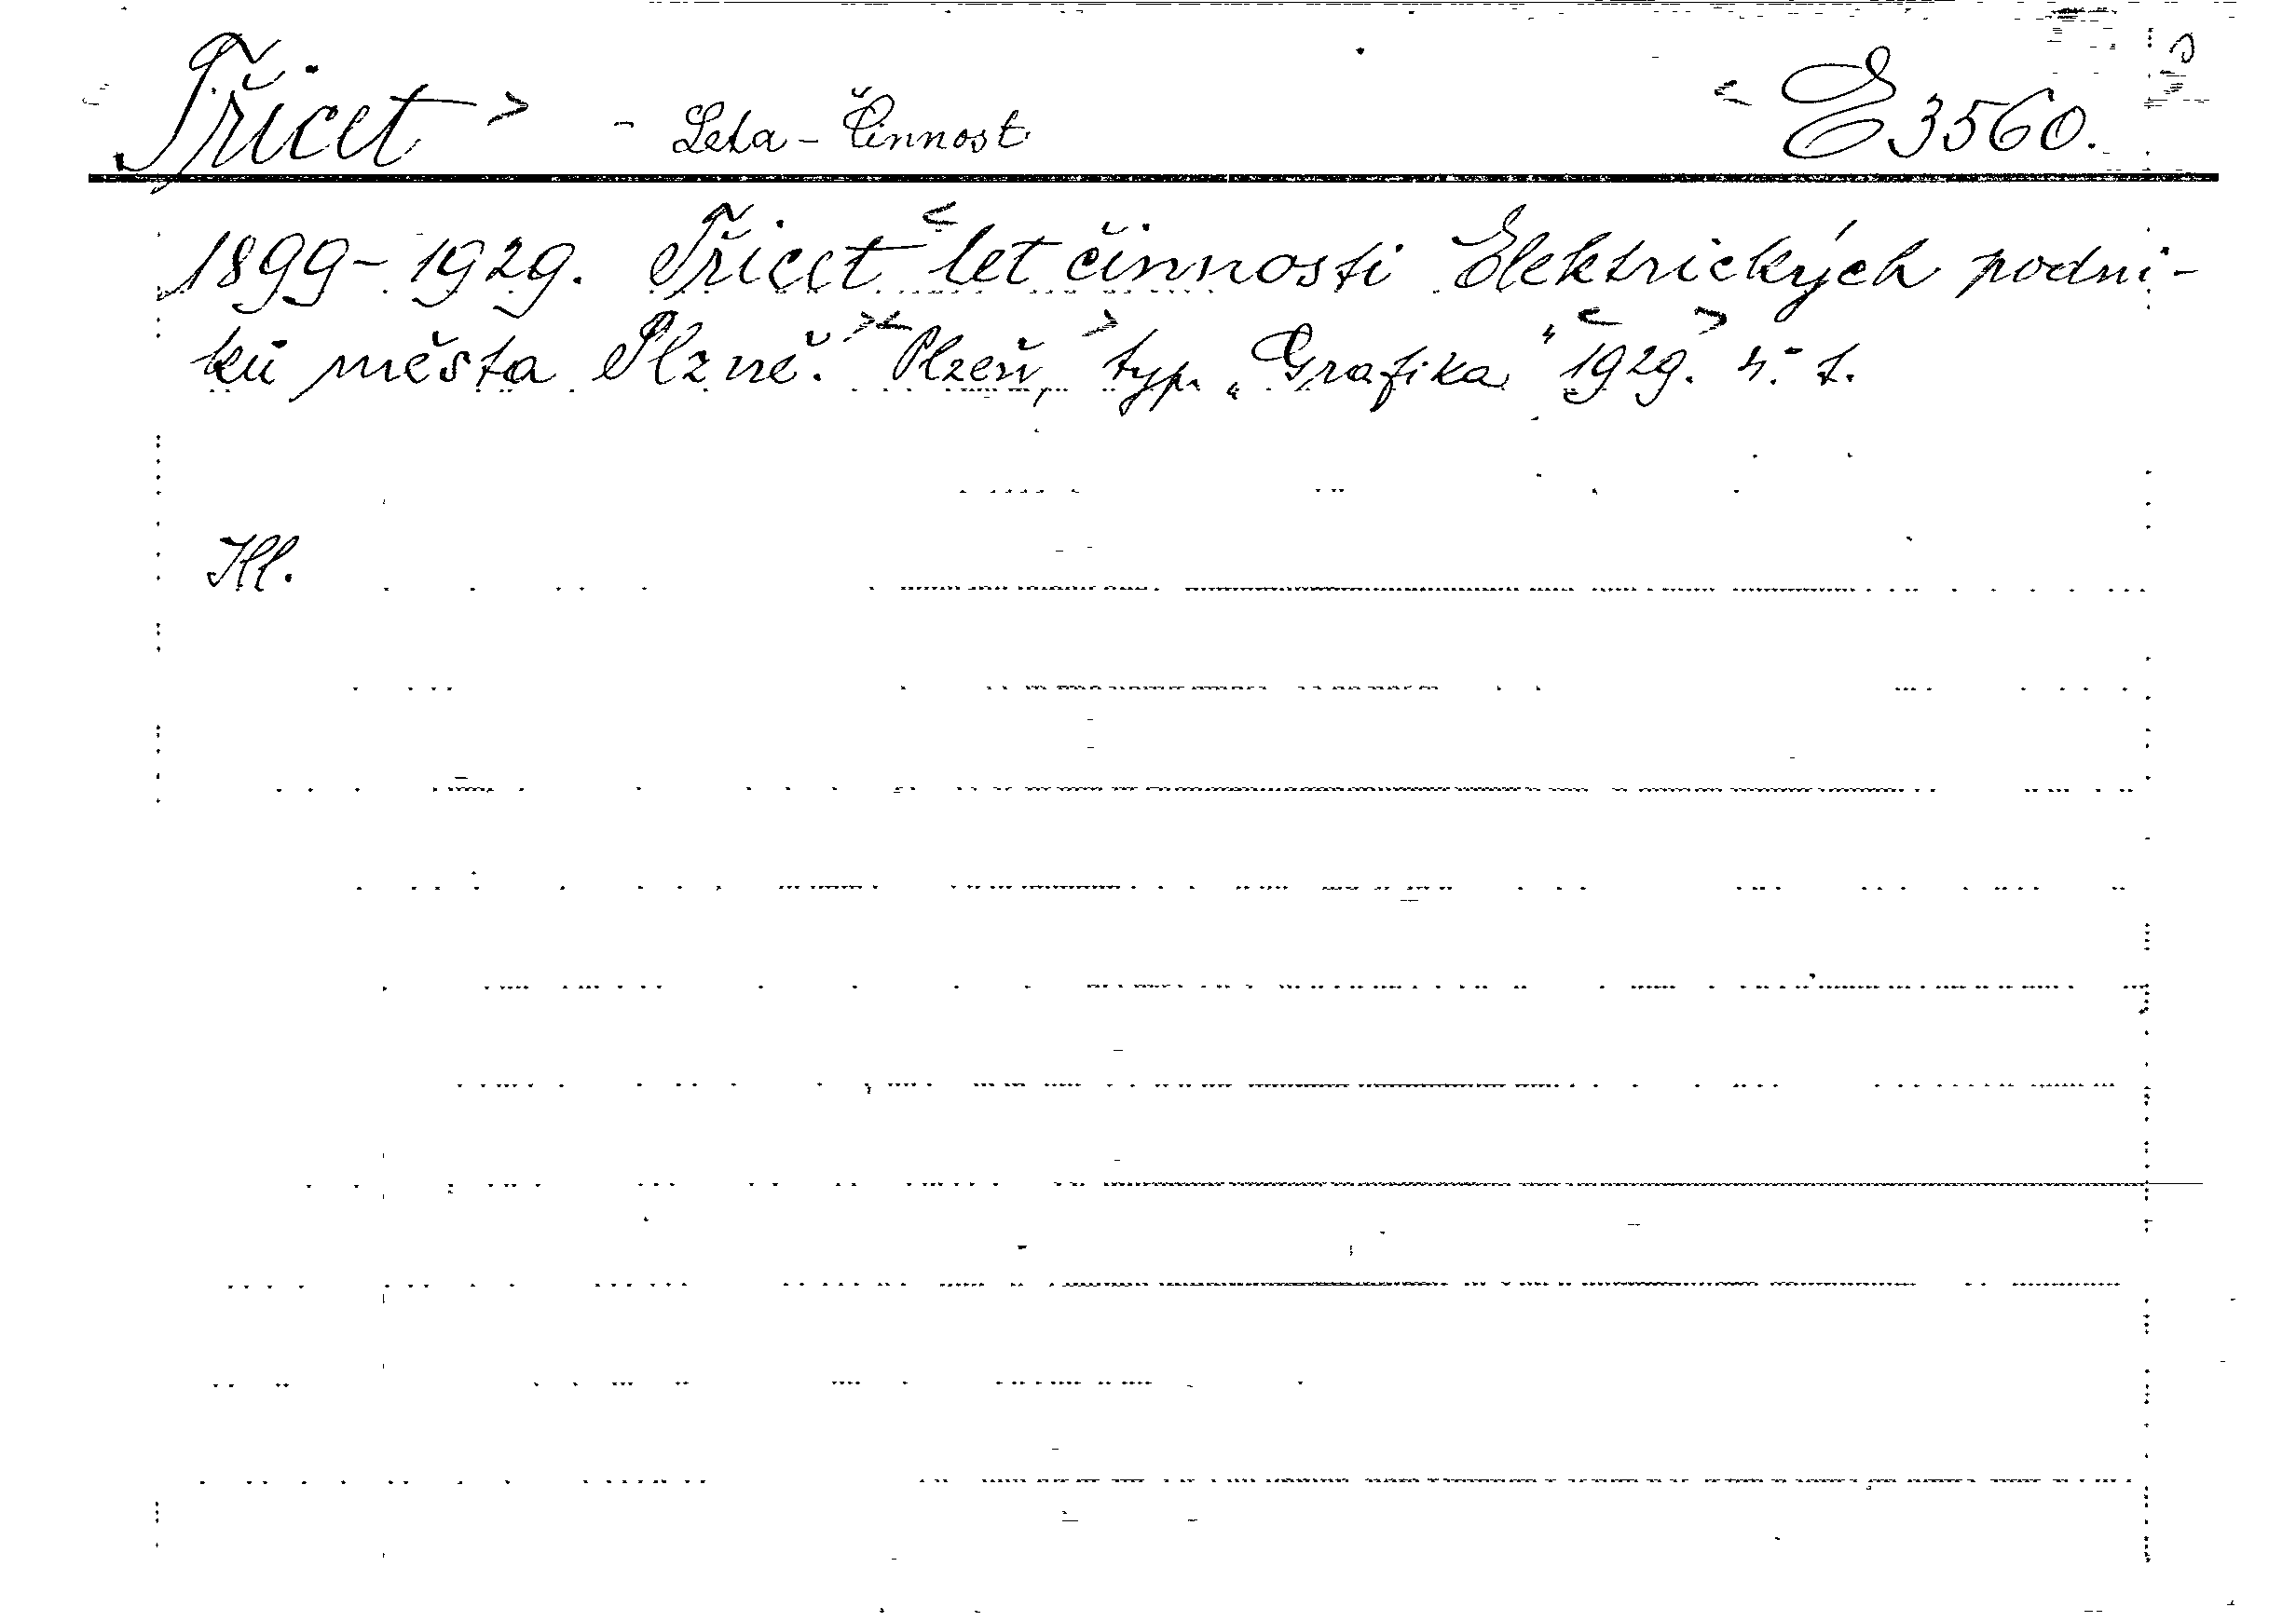 Třicet > - Leta - Činnost < E 3560.
1899-1929. Třicet < let činnosti Elektrických podni-
ků města Plzně. >< Plzeň, > typ. „Grafika" < 1929. > 4.-
Hl.